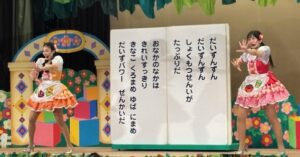 だいずんずん
だいずんずん
しょくもつせんいが
たっぷりだ
おなかのなかは
きれいすっきり
きなこ くろまめ ゆば にまめ
だいずパワー ぜんかいだ